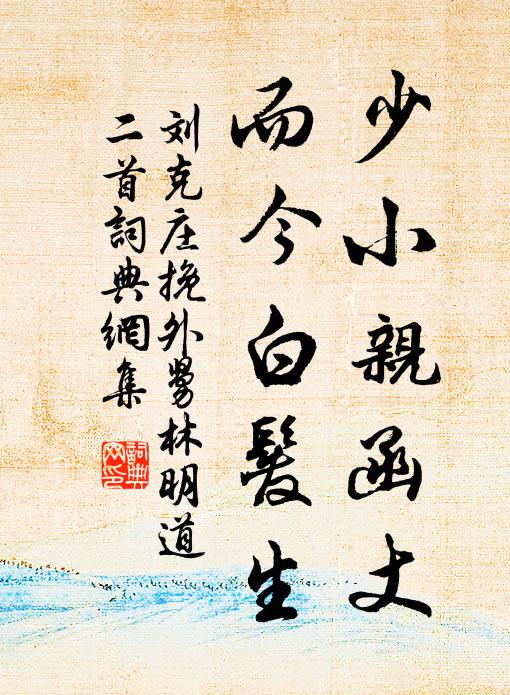 少小親函丈
而今白髮生
刘克庄挽外舅林明道
二首詞典網集
詞典
网印